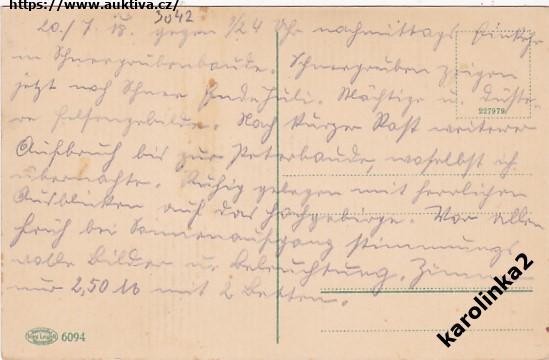 https://www.auktiva.cz/
3042
20./7. 18. gegen 1/2 4 Uhr nachmittags Einkehr
in Schneegrubenbaude. Schneegruben zeigen
jetzt noch Schnee Ende Juli. Mächtige u. düste-
re Felsengebilde. Nach kurzer Rast weiterer
Aufbruch bis zur Peterbaude, woselbst ich
übernachte. Ruhig gelegen mit herrlichen
Ausblicken auf das Hochgebirge. Vor allem
früh bei Sonnenaufgang stimmungs
volle Bilder u. Beleuchtung. Zimmer
nur 2,50 M mit 2 Betten.
227979
6094
karolinka2